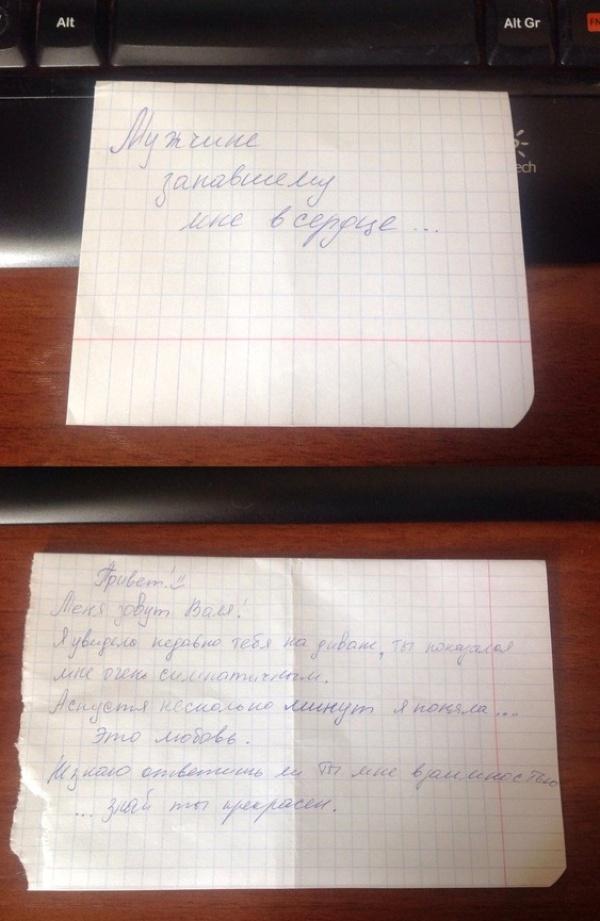 Alt
Alt Gr
FN
ech
Мужчине
запавшему
мне в сердце...
Привет!
Меня зовут Валя!
Я увидела недавно тебя на диване, ты показался
мне очень симпатичным.
А спустя несколько минут я поняла...
Это любовь.
знаю ответишь ли ты мне взаимностью
... знай ты прекрасен.